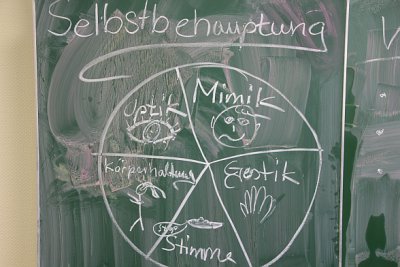 Selbstbehauptung
Optik
Mimik
Körperhaltung
Gestik
Stimme